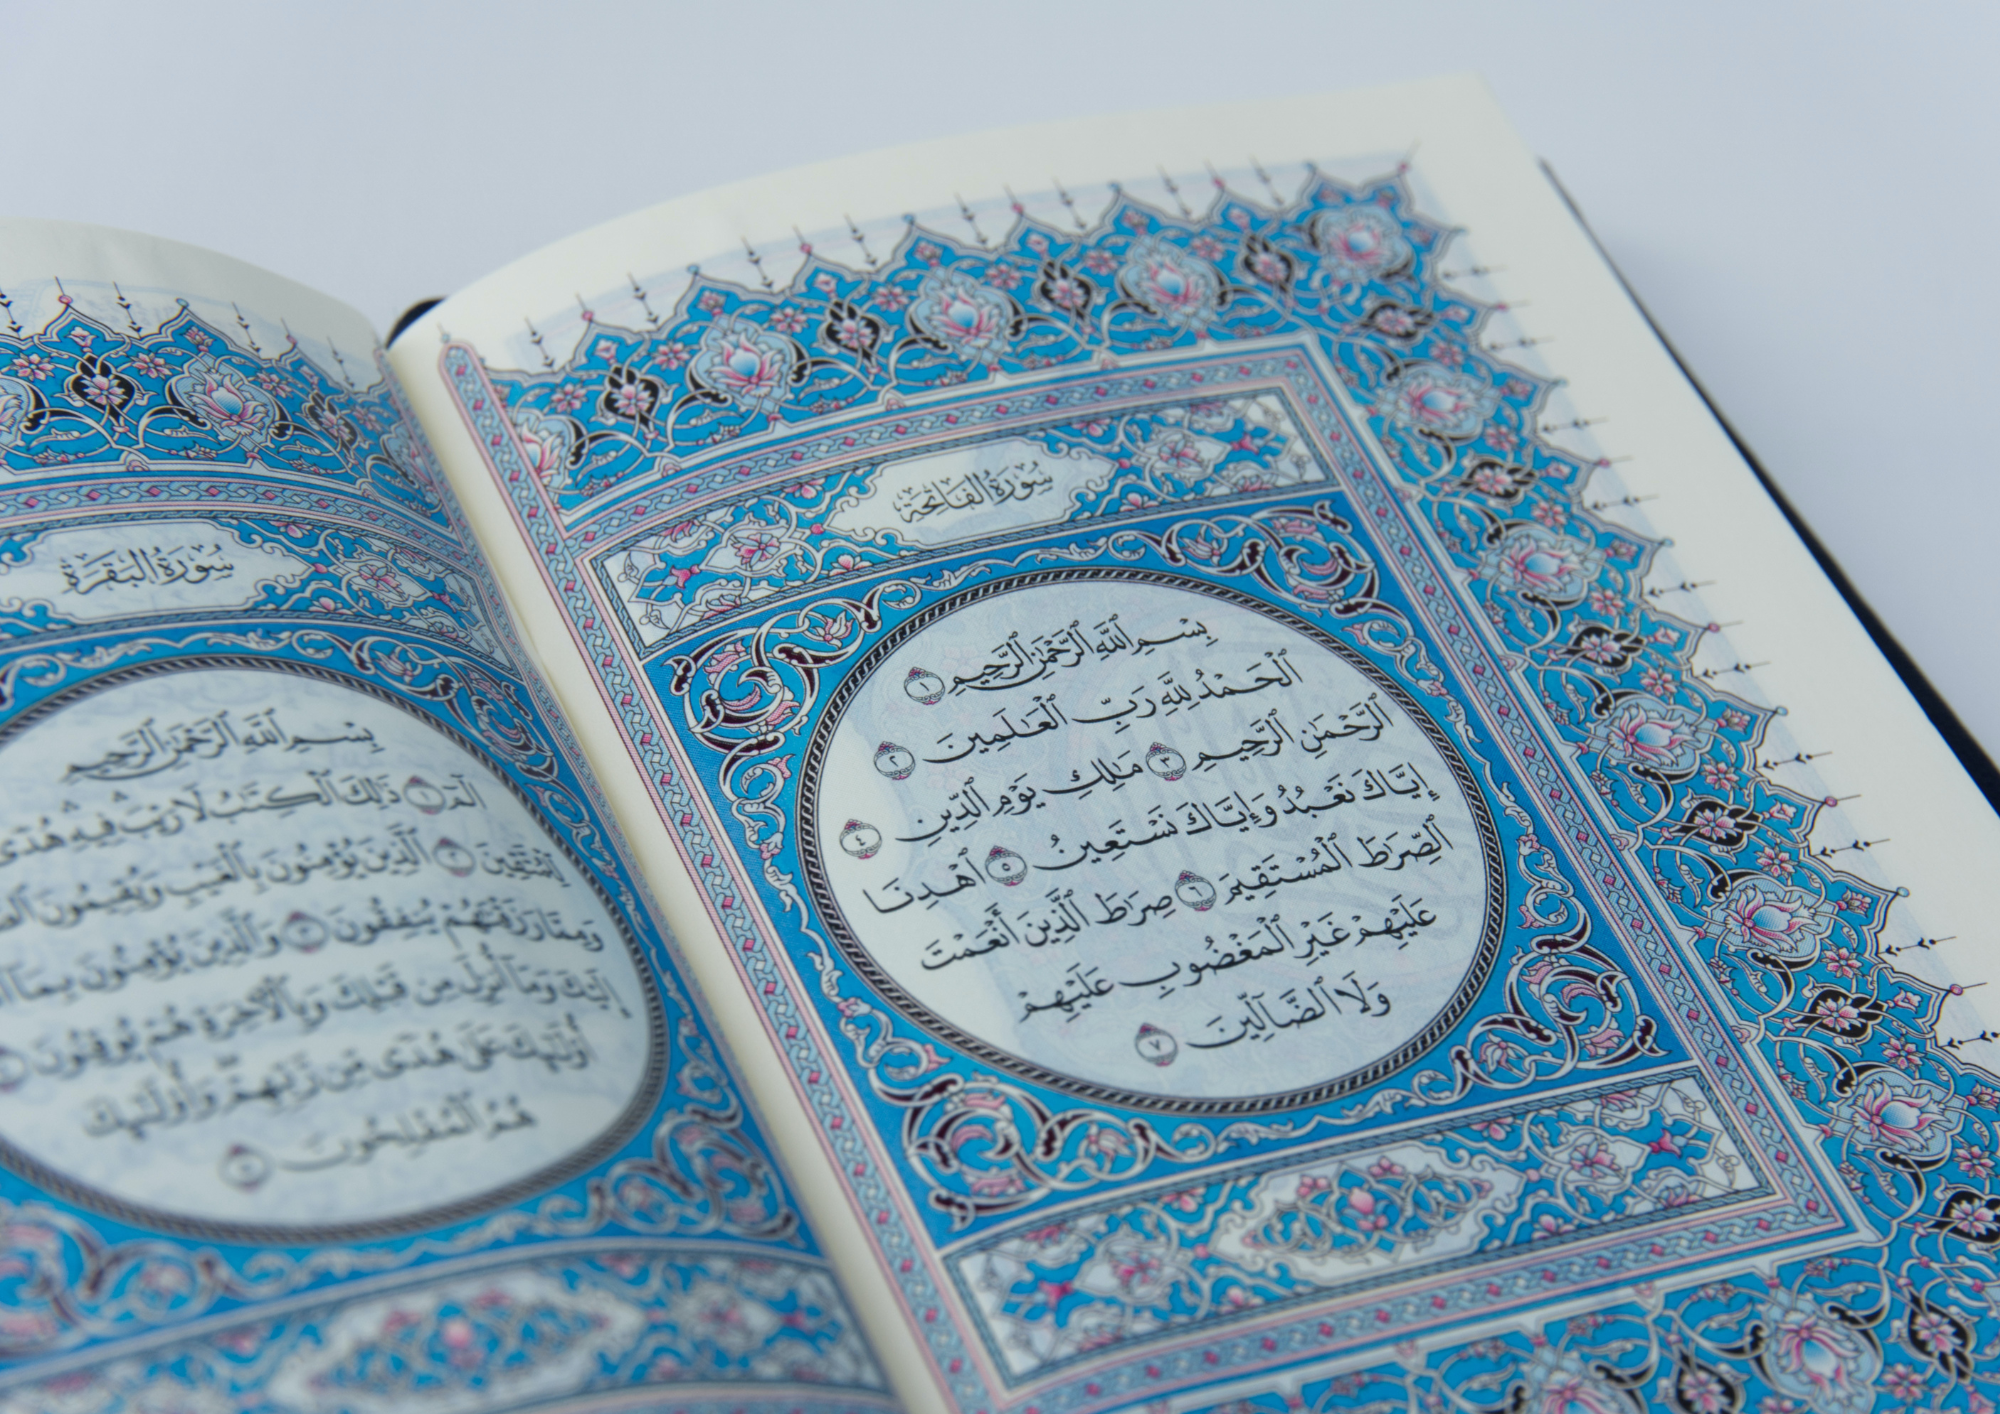 سُورَةُ الْفَاتِحَةِ
بِسْمِ ٱللَّهِ ٱلرَّحْمَٰنِ ٱلرَّحِيمِ ١
ٱلْحَمْدُ لِلَّهِ رَبِّ ٱلْعَٰلَمِينَ ٢
ٱلرَّحْمَٰنِ ٱلرَّحِيمِ ٣ مَٰلِكِ يَوْمِ ٱلدِّينِ ٤
إِيَّاكَ نَعْبُدُ وَإِيَّاكَ نَسْتَعِينُ ٥ ٱهْدِنَا
ٱلصِّرَٰطَ ٱلْمُسْتَقِيمَ ٦ صِرَٰطَ ٱلَّذِينَ أَنْعَمْتَ
عَلَيْهِمْ غَيْرِ ٱلْمَغْضُوبِ عَلَيْهِمْ
وَلَا ٱلضَّآلِّينَ ٧
سُورَةُ الْبَقَرَةِ
بِسْمِ ٱللَّهِ ٱلرَّحْمَٰنِ ٱلرَّحِيمِ
الٓمٓ ١ ذَٰلِكَ ٱلْكِتَٰبُ لَا رَيْبَ فِيهِ هُدًى
لِّلْمُتَّقِينَ ٢ ٱلَّذِينَ يُؤْمِنُونَ بِٱلْغَيْبِ وَيُقِيمُونَ
وَمِمَّا رَزَقْنَٰهُمْ يُنفِقُونَ ٣ وَٱلَّذِينَ يُؤْمِنُونَ بِمَآ
إِلَيْكَ وَمَآ أُنزِلَ مِن قَبْلِكَ وَبِٱلْأَخِرَةِ هُمْ يُوقِنُونَ
أُو۟لَٰٓئِكَ عَلَىٰ هُدًى مِّن رَّبِّهِمْ وَأُو۟لَٰٓئِكَ
هُمُ ٱلْمُفْلِحُونَ